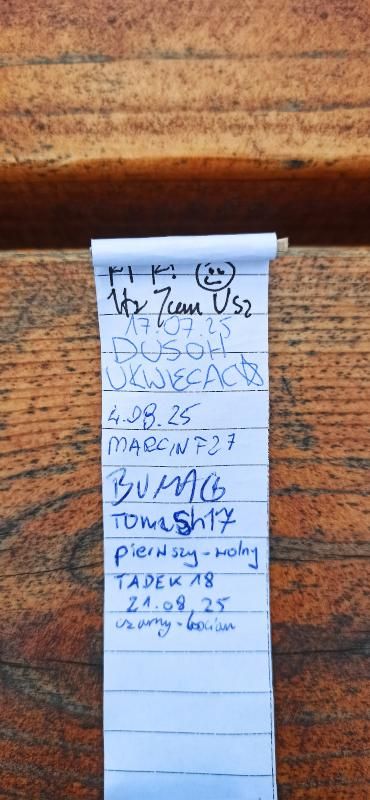 17.07.25
DUSOH
UKWIECACA
4.08.25
MARCINF27
BUMAG
Tomash17
pierwszy-wolny
TADEK 18
21.08.25
czarny-bocian